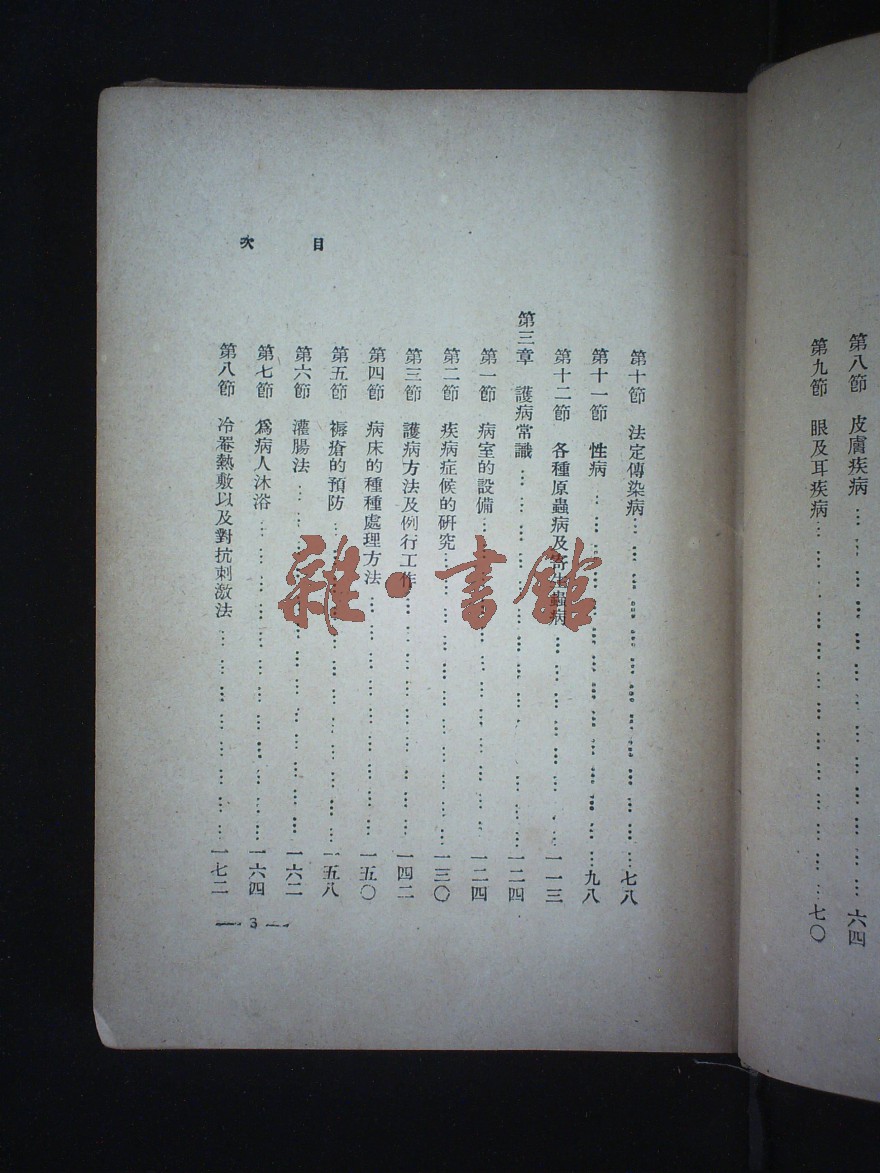 第八節 皮膚疾病……六四
第九節 眼及耳疾病……七〇
目次
第十節 法定傳染病……七八
第十一節 性病……九八
第十二節 各種原蟲病及寄生蟲病……一一三
第三章 護病常識……一二四
第一節 病室的設備……一二四
第二節 疾病症候的研究……一三〇
第三節 護病方法及例行工作……一四二
第四節 病床的種種處理方法……一五〇
第五節 褥瘡的預防……一五八
第六節 灌腸法……一六二
第七節 爲病人沐浴……一六四
第八節 冷罨熱敷以及對抗刺激法……一七二
— 3 —
雜·書館